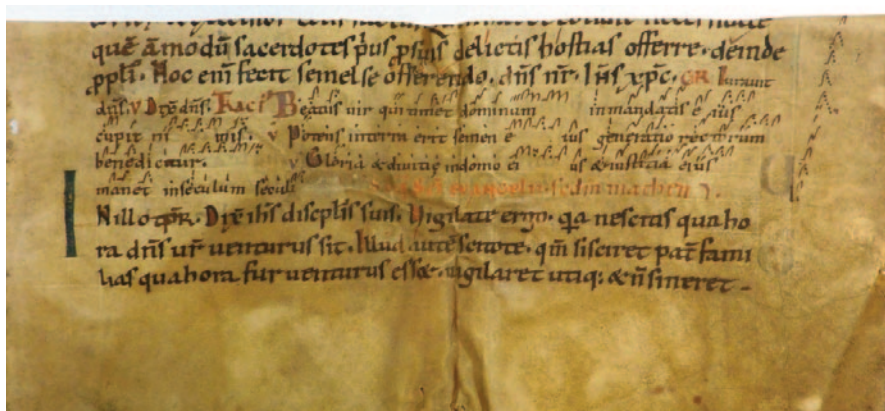 quē ām̄odū sacerdotes p̄us p̱suis delictis hostias offerre. deinde
p̱pli. Hoc eni fecit semel se offerendo. dn̄s nr̄. Ih̄s xp̄c. GR Iurauit
dn̄s. v Dix̄ dn̄s. Beatus uir qui timet dominum in mandatis e ius
cupit ni mis. v Potens in terra erit semen e ius generatio rectorum
benedicetur. v Gloria & diuitię in domo ei us & iusticia eius
manet in seculum seculi
In illo tp̄r. Dix̄ ih̄s discipl̄is suis. Uigilate ergo. q̄a nescitis qua ho
ra dn̄s ur̄ uenturus sit. Illud aute scitote. qm̄ si sciret pat̄ fami
lias qua hora fur uenturus ess&. uigilaret utiq; & n̄ sineret